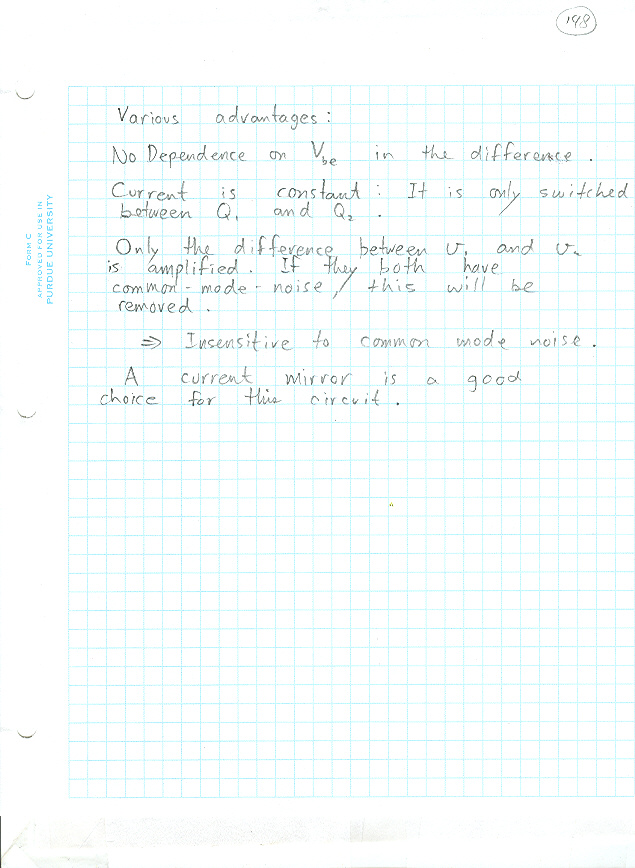 198
Various advantages:
No Dependence on Vbe in the difference.
Current is constant: It is only switched
between Q1 and Q2.
Only the difference between v1 and v2
is amplified. If they both have
common-mode-noise, this will be
removed.
⇒ Insensitive to common mode noise.
A current mirror is a good
choice for this circuit.
FORM C
APPROVED FOR USE IN
PURDUE UNIVERSITY